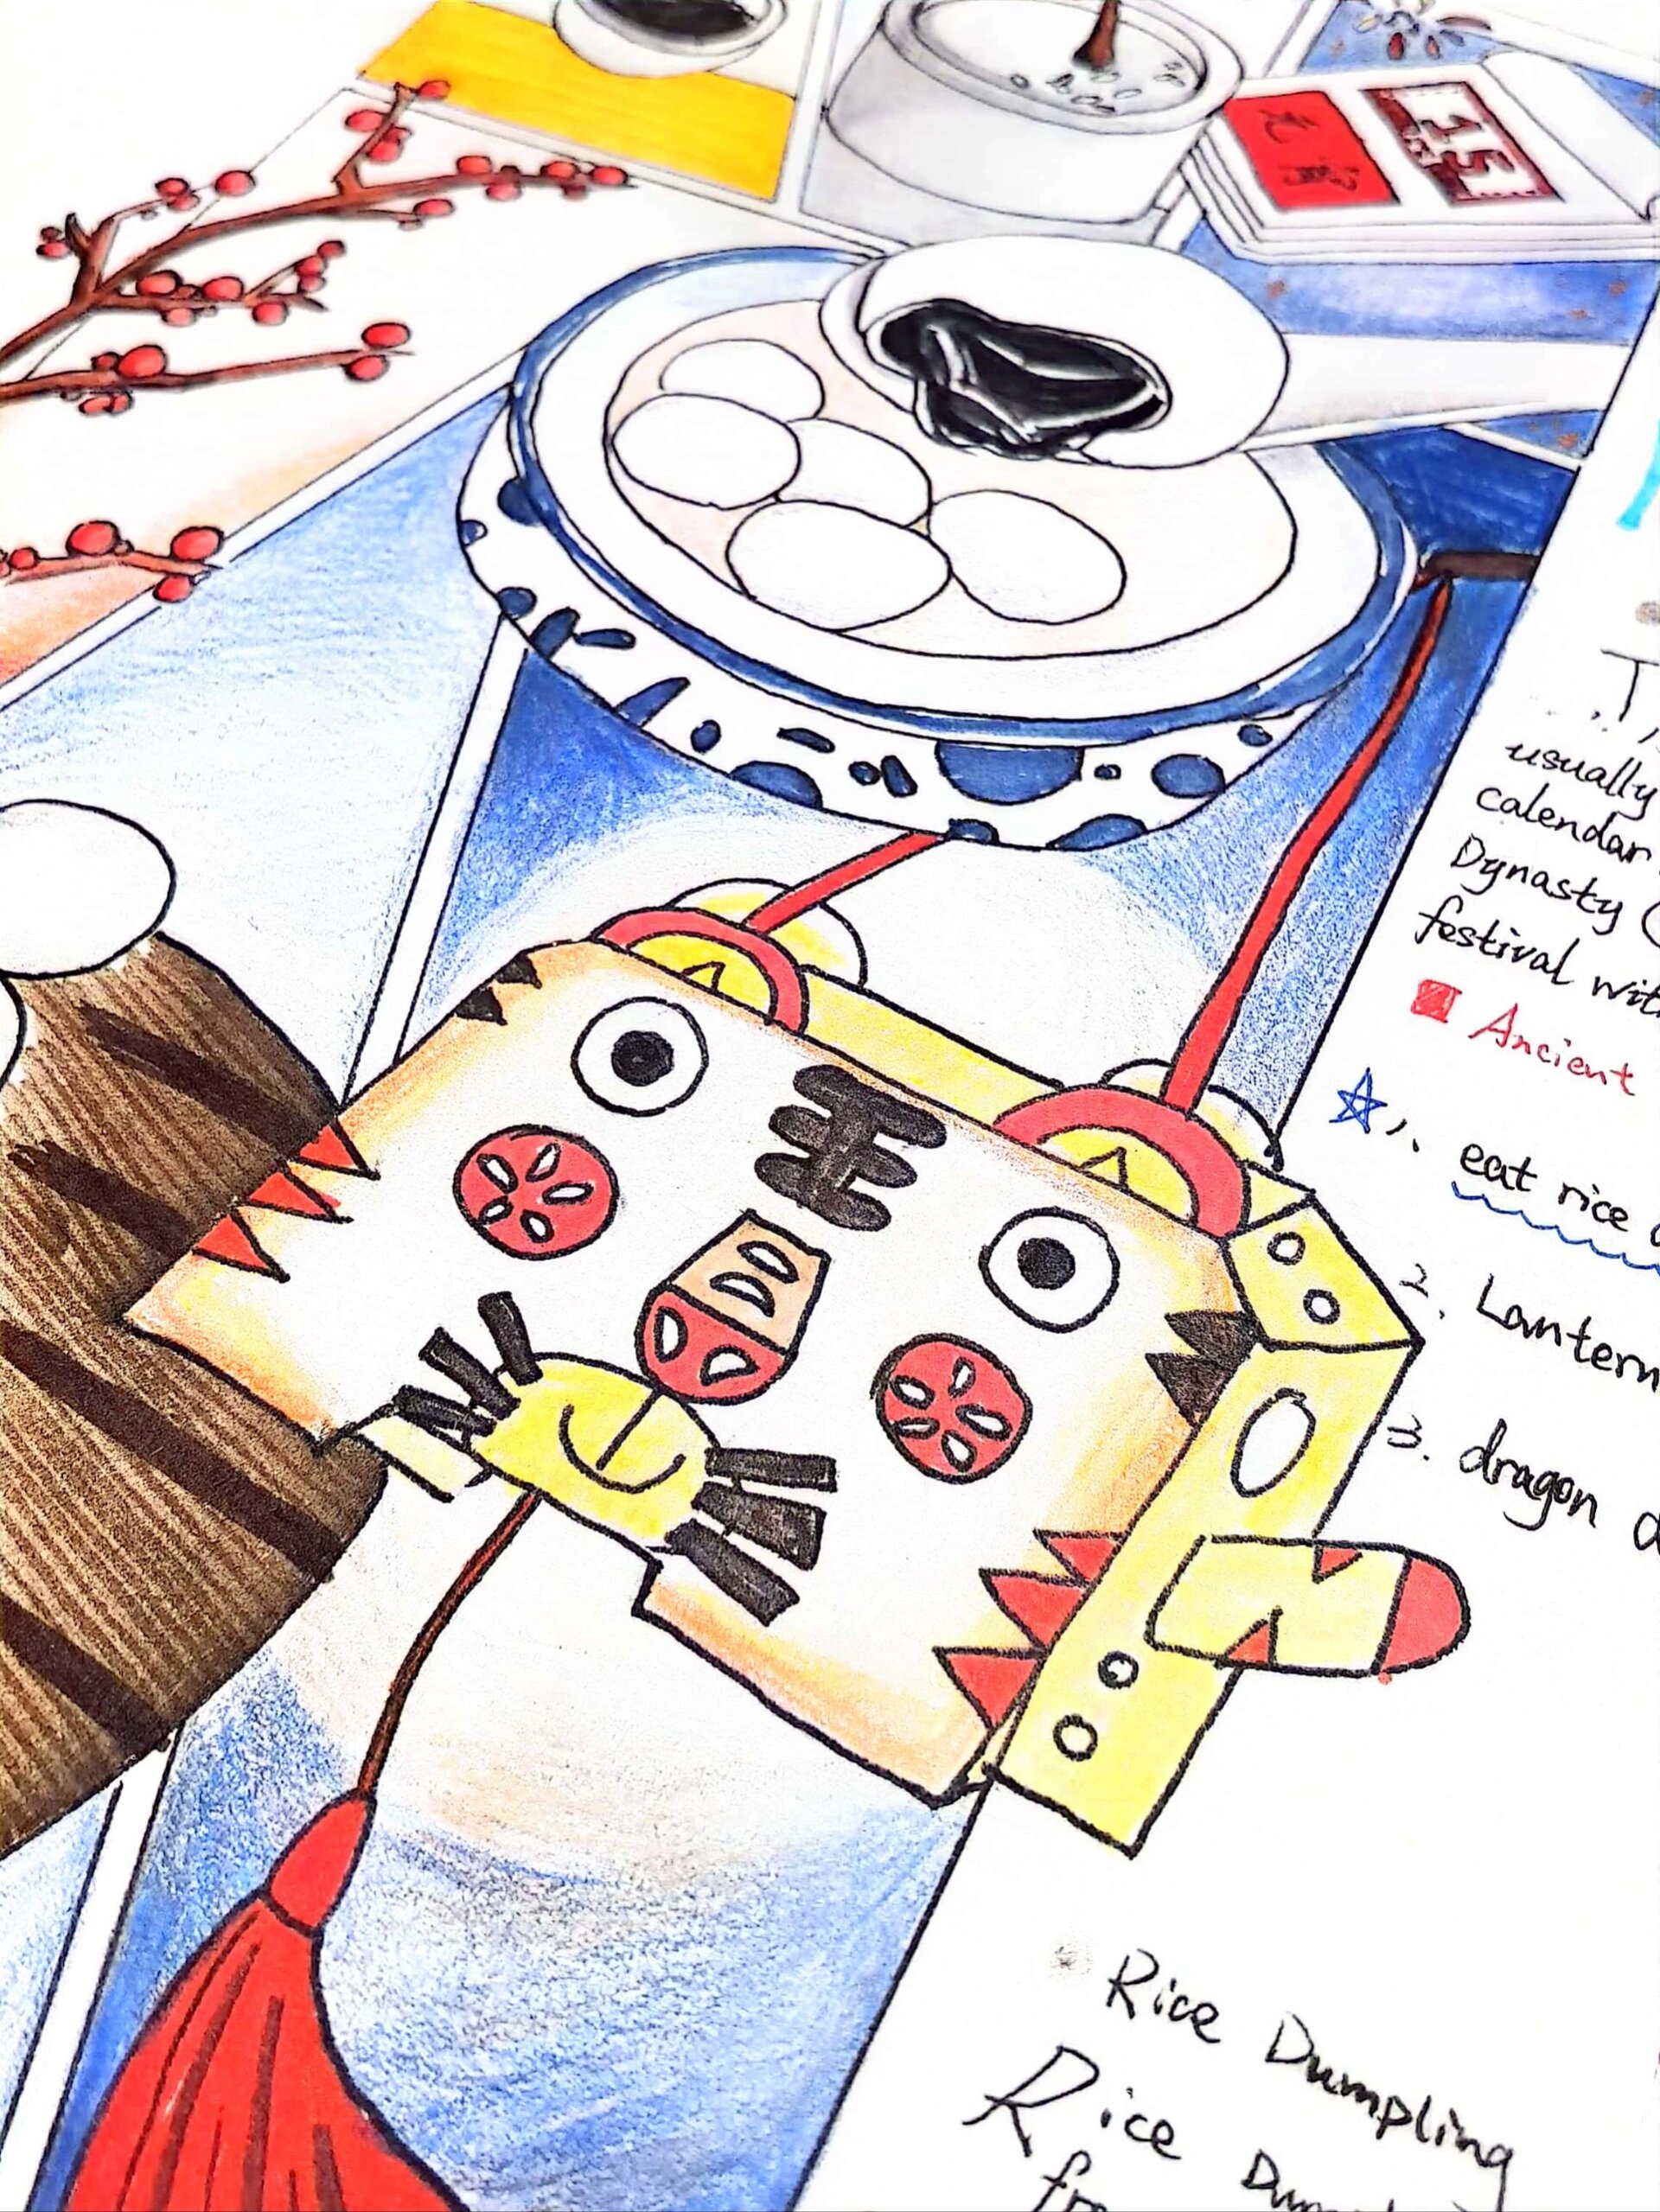 元宵
15
王
usually
calendar
Dynasty (
festival with
Ancient
1. eat rice
2. Lantern
3. dragon d
Rice Dumpling
Rice Dump
fr